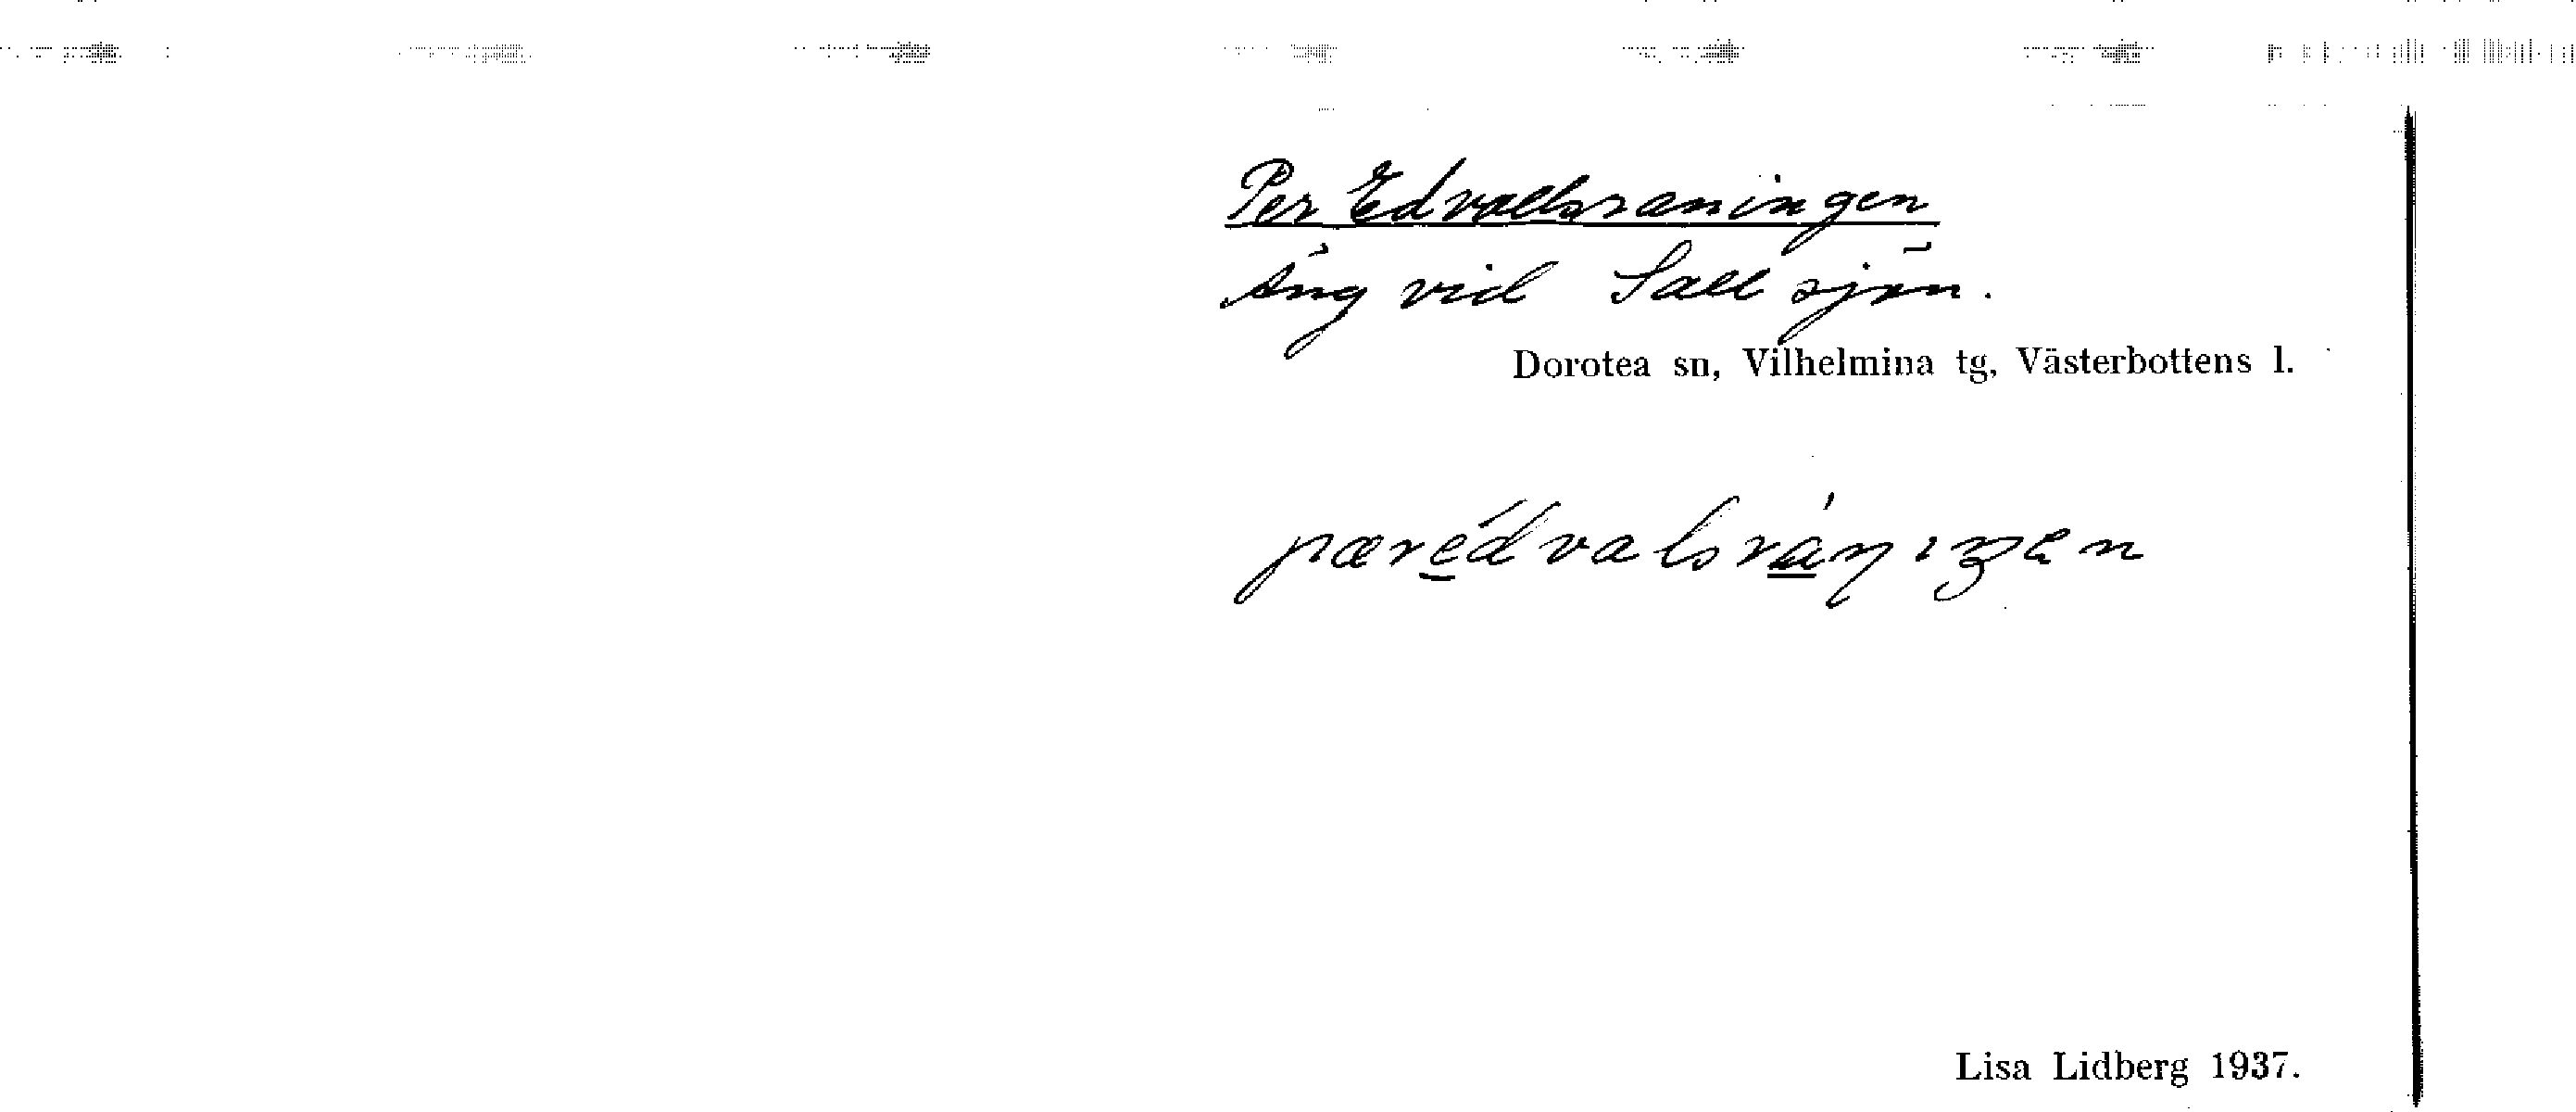 Per Edvallsraningen
Äng vid Sallsjön.
Dorotea sn, Vilhelmina tg, Västerbottens l.
Lisa Lidberg 1937.